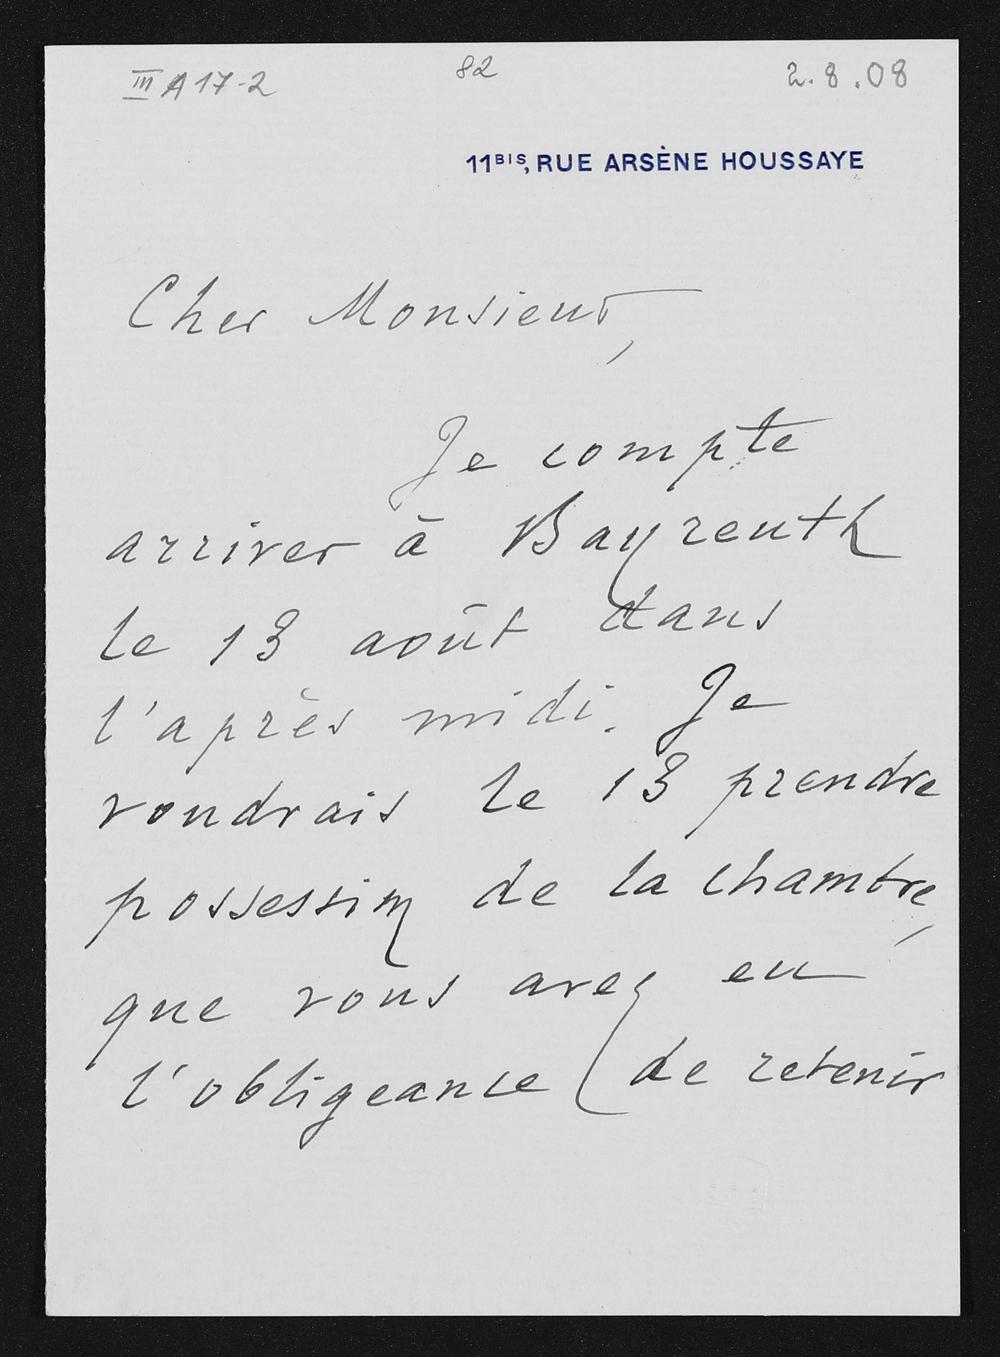 III A 17-2
82
2.8.08
11BIS, RUE ARSÈNE HOUSSAYE
Cher Monsieur,
Je compte
arriver à Bayreuth
le 13 août dans
l'après midi. Je
voudrais le 13 prendre
possession de la chambre,
que vous avez eu
l'obligeance de retenir